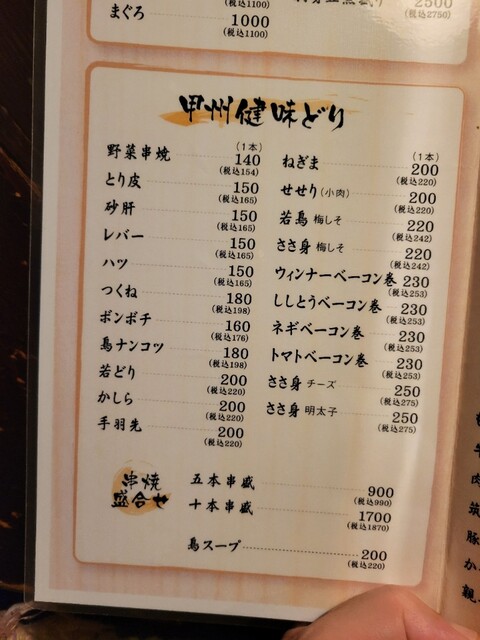 (税込1100)
まぐろ
1000
(税込1100)
2500
(税込2750)
甲州健味どり
(1本)
野菜串焼 140
(税込154)
とり皮 150
(税込165)
砂肝 150
(税込165)
レバー 150
(税込165)
ハツ 150
(税込165)
つくね 180
(税込198)
ボンボチ 160
(税込176)
鳥ナンコツ 180
(税込198)
若どり 200
(税込220)
かしら 200
(税込220)
手羽先 200
(税込220)
(1本)
ねぎま 200
(税込220)
せせり(小肉) 200
(税込220)
若鳥 梅しそ 220
(税込242)
ささ身 梅しそ 220
(税込242)
ウィンナーベーコン巻 230
(税込253)
ししとうベーコン巻 230
(税込253)
ネギベーコン巻 230
(税込253)
トマトベーコン巻 230
(税込253)
ささ身 チーズ 250
(税込275)
ささ身 明太子 250
(税込275)
串焼
盛合せ
五本串盛 900
(税込990)
十本串盛 1700
(税込1870)
鳥スープ 200
(税込220)
肉
筑
豚
か
親